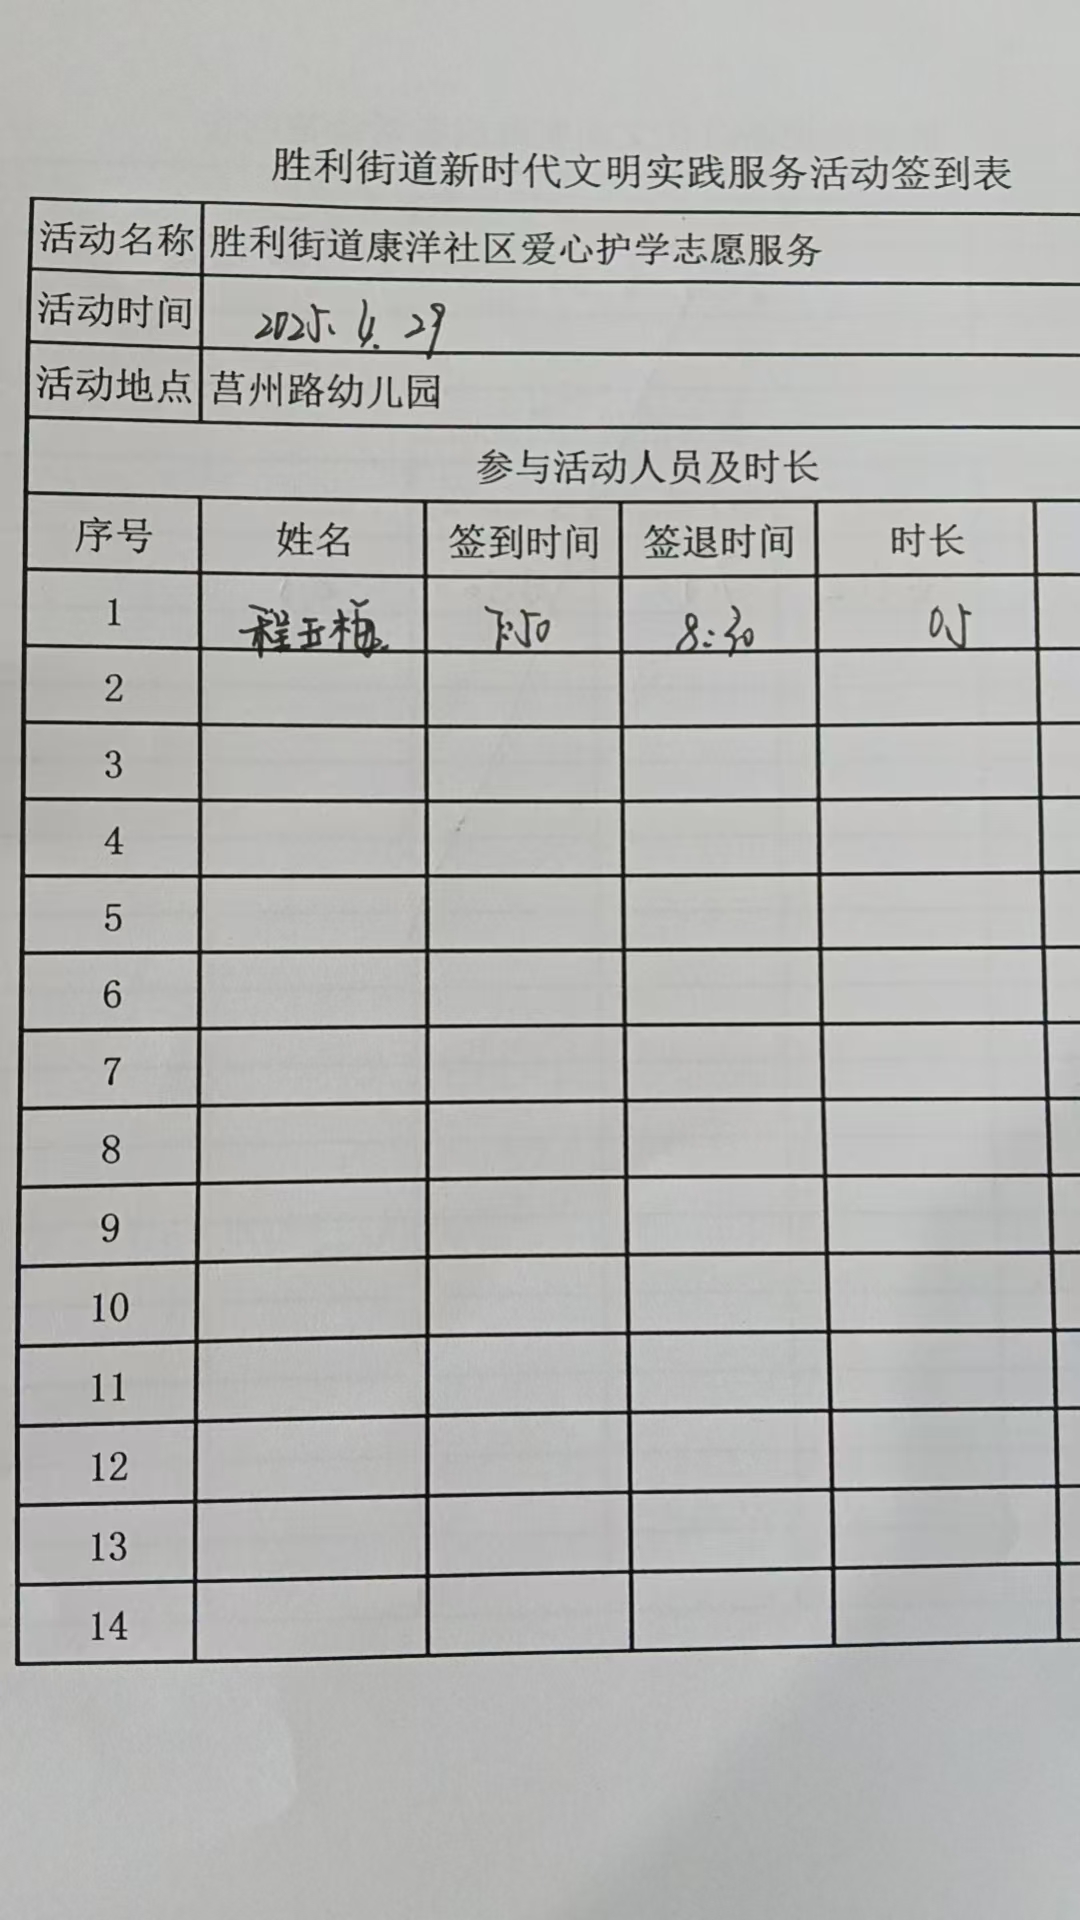 胜利街道新时代文明实践服务活动签到表
活动名称 胜利街道康洋社区爱心护学志愿服务
活动时间 2025.4.29
活动地点 莒州路幼儿园
参与活动人员及时长
序号 姓名 签到时间 签退时间 时长
1 程玉梅 7:50 8:30 05
2
3
4
5
6
7
8
9
10
11
12
13
14